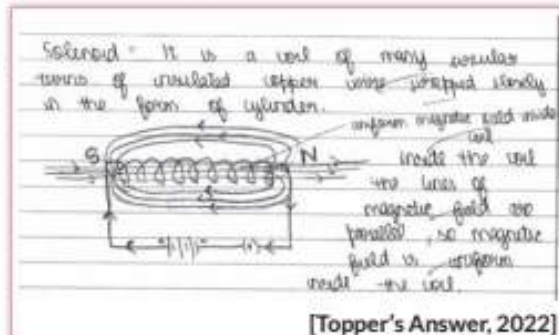 Solenoid - It is a coil of many circular
turns of insulated copper wire wrapped closely
in the form of cylinder.
uniform magnetic field inside
coil
S
N
inside the coil
the lines of
magnetic field are
parallel, so magnetic
field is uniform
inside the coil.
[Topper's Answer, 2022]